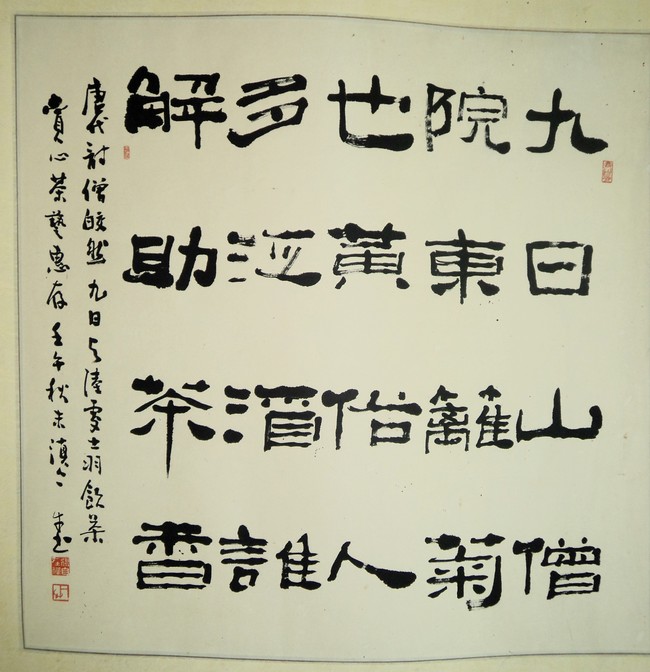 九日山僧
院東籬菊
也黃俗人
多泛酒誰
解助茶香
唐代詩僧皎然九日与陸處士羽飲茶
賞心茶藝惠存壬午秋末滇